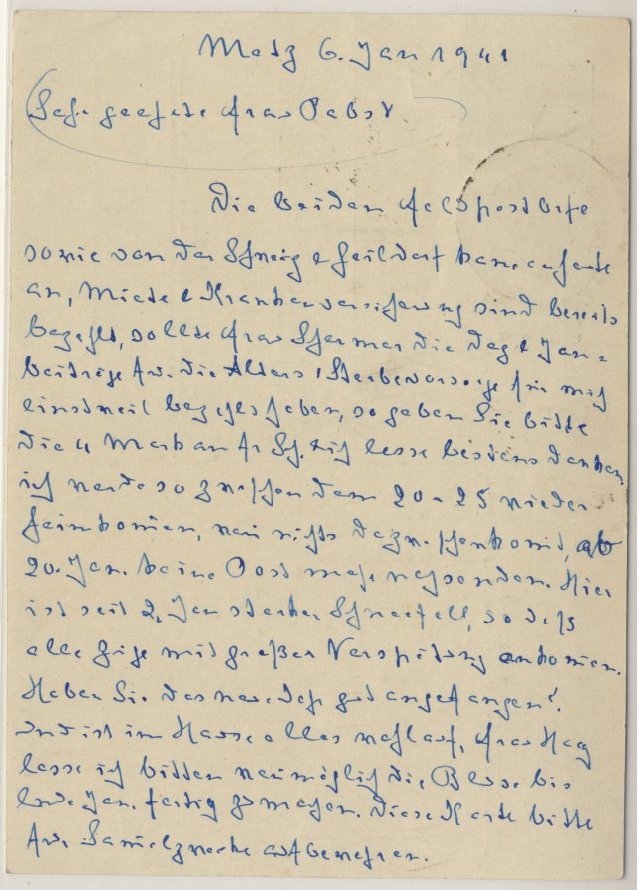 Metz 6. Jan 1941
Sehr geehrte Frau Pabst
Die beiden Feldpostbriefe
sowie von der Schweiz & Heildorf kamen heute
an, Miete & Krankenversicherung sind bereits
bezahlt, sollte Frau Schermer die Dez & Jan=
beiträge für die Alters & Sterbevorsorge für mich
einstweil bezahlt haben, so geben Sie bitte
die 4 Mark an Fr Sch. Ich lasse bestens danken.
ich werde so zwischen dem 20 - 25 wieder
heimkomen, wen nichts dazwischenkomt, ab
20. Jan. keine Post mehr nachsenden. Hier
ist seit 2. Jan starker Schneefall, so daß
alle Züge mit großer Verspätung ankomen.
Haben Sie das neue Jahr gut angefangen?
und ist im Hause alles wohlauf, Frau Hag
lasse ich bitten wen möglich die Bluse bis
Ende Jan. fertig zu machen. Diese Karte bitte
für Samelzwecke aufbewahren.